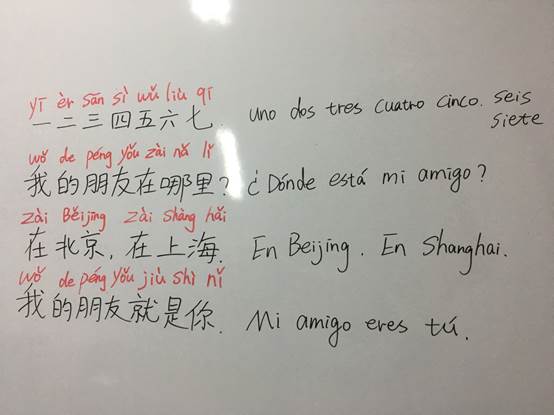 yī èr sān sì wǔ liù qī
一二三四五六七. uno dos tres cuatro cinco. seis
siete
wǒ de péng yǒu zài nǎ lǐ
我的朋友在哪里? ¿Dónde está mi amigo?
zài Běijīng zài shàng hǎi
在北京,在上海. En Beijing. En Shanghai.
wǒ de péng yǒu jiù shì nǐ
我的朋友就是你. Mi amigo eres tú.